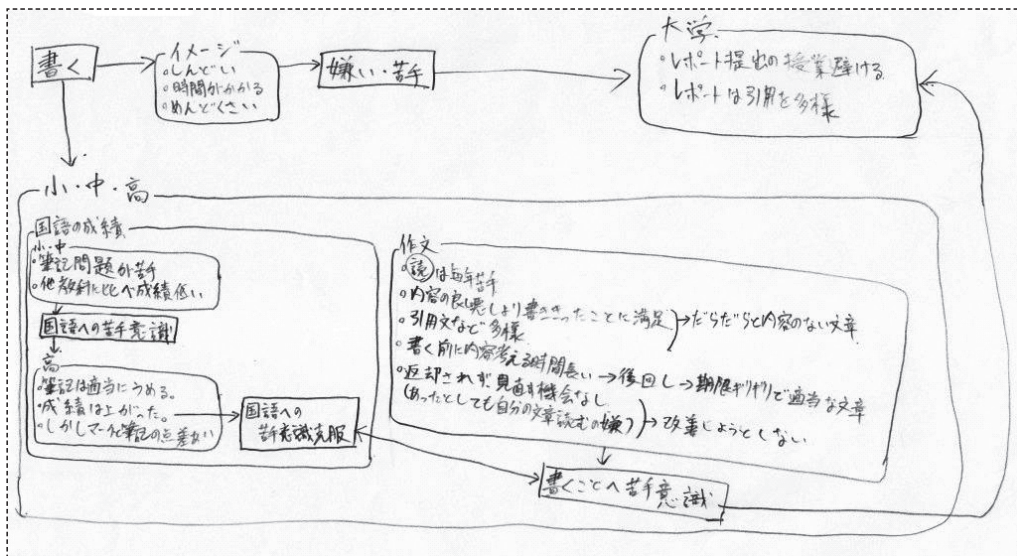 書く
イメージ
・しんどい
・時間がかかる
・めんどくさい
嫌い・苦手
大学
・レポート提出の授業避ける
・レポートは引用を多様
小・中・高
国語の成績
小・中
・筆記問題が苦手
・他教科に比べ成績低い
国語への苦手意識
高
・筆記は適当にうめる。
・成績は上がった。
・しかしマークと筆記の点差
国語への
苦手意識克服
作文
・読は毎年苦手
・内容の良し悪しより書ききったことに満足
・引用文など多様
→だらだらと内容のない文章
・書く前に内容考える時間長い→後回し→期限ギリギリで適当な文章
・返却されず見直す機会なし
(あったとしても自分の文章読むの嫌)
→改善しようとしない
書くことへ苦手意識